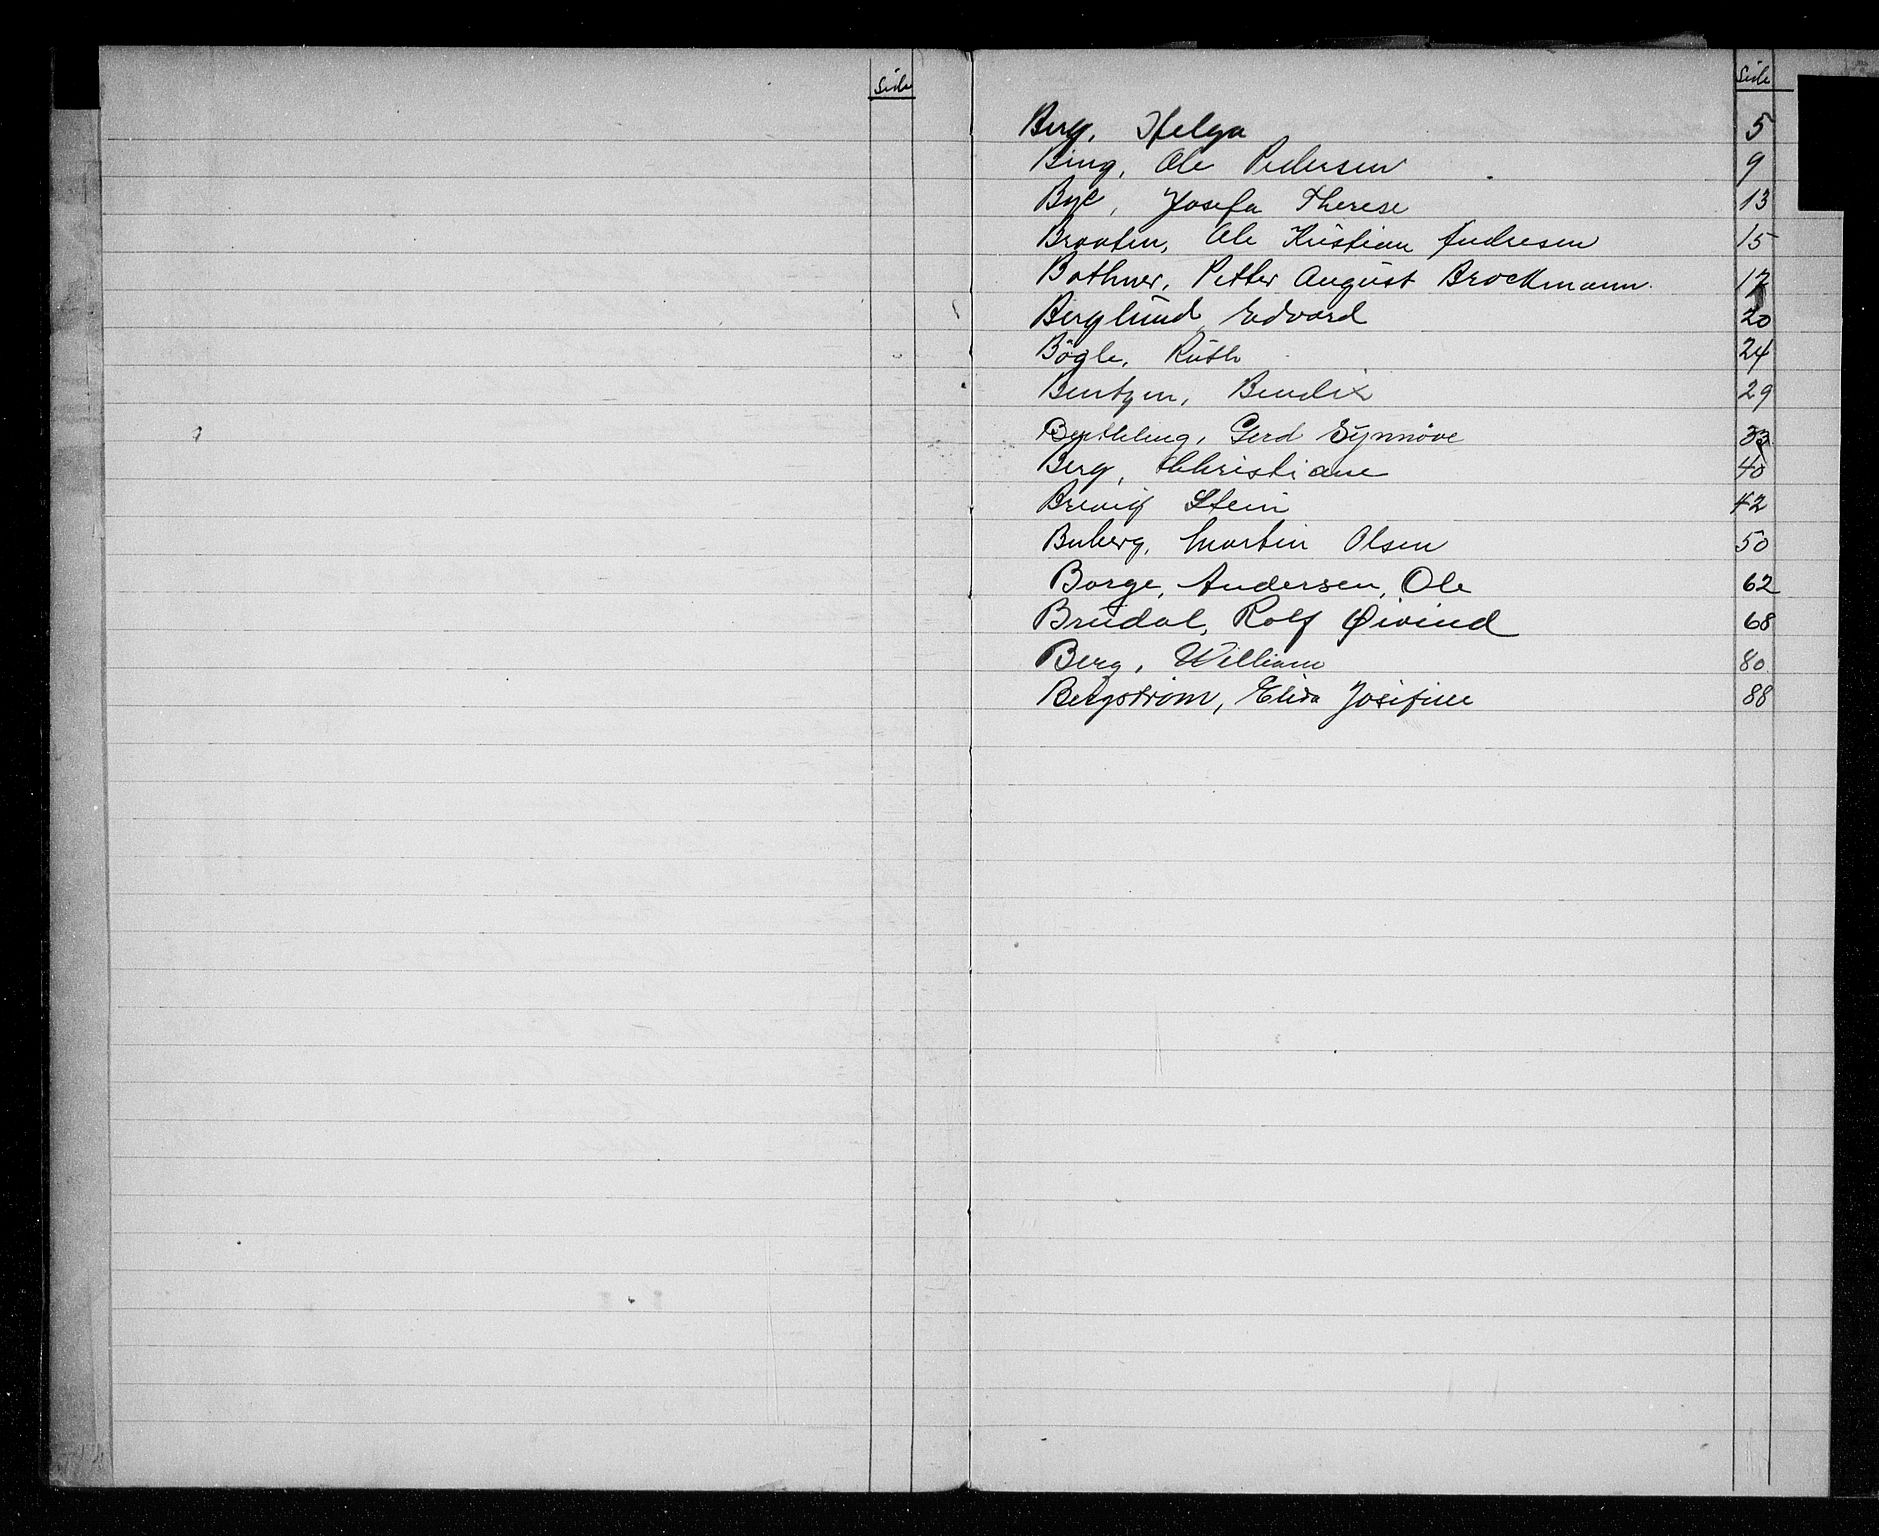 Side
Side
Berg, Helga 5
Bing, Ole Pedersen 9
Bye, Josefa Therese 13
Braaten, Ole Kristian Andresen 15
Bothner, Petter August Brockmann. 17
Berglund, Edvard 20
Bögle, Ruth 24
Bentzen, Bendix 29
Berthling, Gerd Synnöve 33
Berg, Christiane 40
Brevig Stein 42
Buberg, Martin Olsen 50
Borge, Andersen, Ole 62
Brudal, Rolf Øivind 68
Berg, William 80
Bergström, Elida Josefine 88